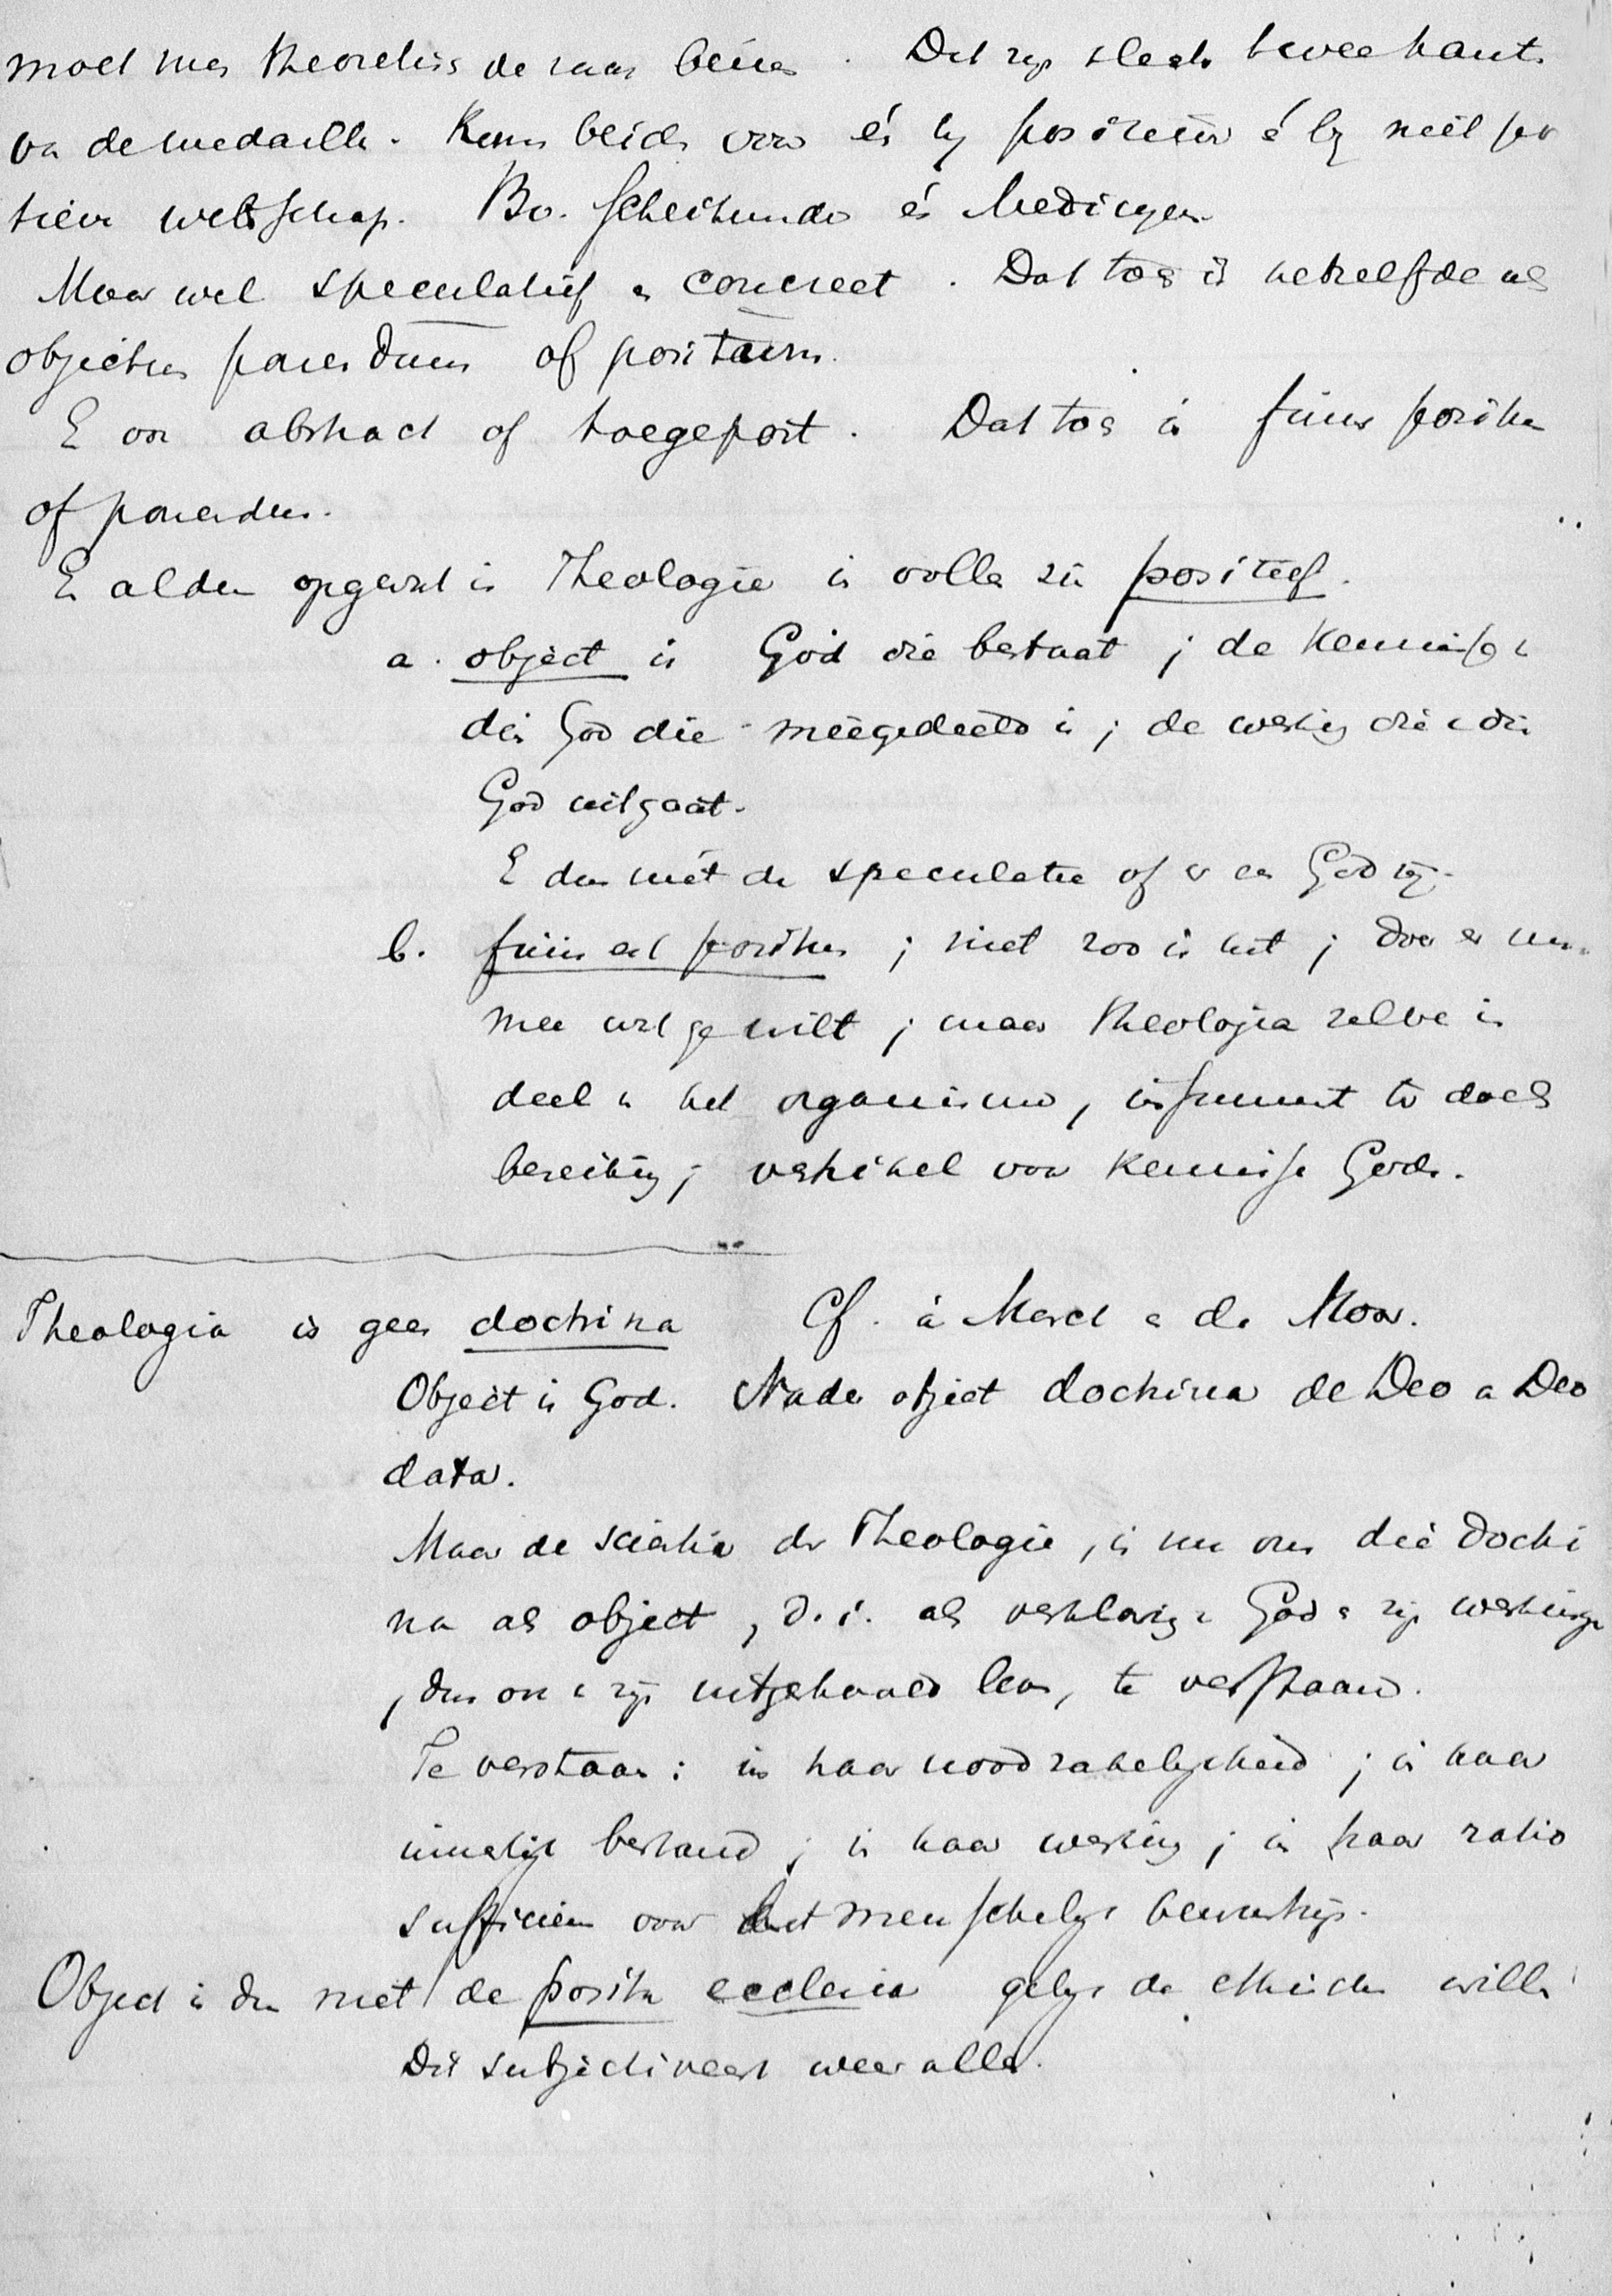 moet men theoretisch de zaak bezien. Dit zijn slechts twee kanten
van de medaille. Komen beide voor én bij positieve én bij niet posi
tieve wetschap. Bv. scheikunde én medicijnen
Maar wel speculatief en concreet. Dat toch is hetzelfde als
objectum ponendum of positum.
En ook abstract of toegepast. Dat toch is finis positus
of ponendus.
En aldus opgevat is Theologie in volle zin positief.
a. object is God die bestaat; de kennisse v
dien God die meegedeeld is; de werking die v dien
God uitgaat.
En dus niet de speculatie of er een God zij.
b. finis est positus; niet zoo is het; doe er nu
mee wat ge wilt; maar theologia zelve is
deel v het organisme, instrument tot doels
bereiking; vehikel voor kennisse Gods.
Theologia is geen doctrina Cf. à Marck en de Moor.
Object is God. Nader object doctrina de Deo a Deo
data.
Maar de scientia der Theologie, is nu om die doctri
na als object, d.i. als verklaring v God en zijn werkingen
, dus ook v zijn uitgehaald leven, te verstaan.
Te verstaan: in haar noodzakelijkheid; in haar
innerlijk bestand; in haar werking; in haar ratio
sufficiens voor het menschelijk bewustzijn.
Object is dus niet de posita ecclesia gelijk de ethischen willen
Dit subjectiveert weer alles.